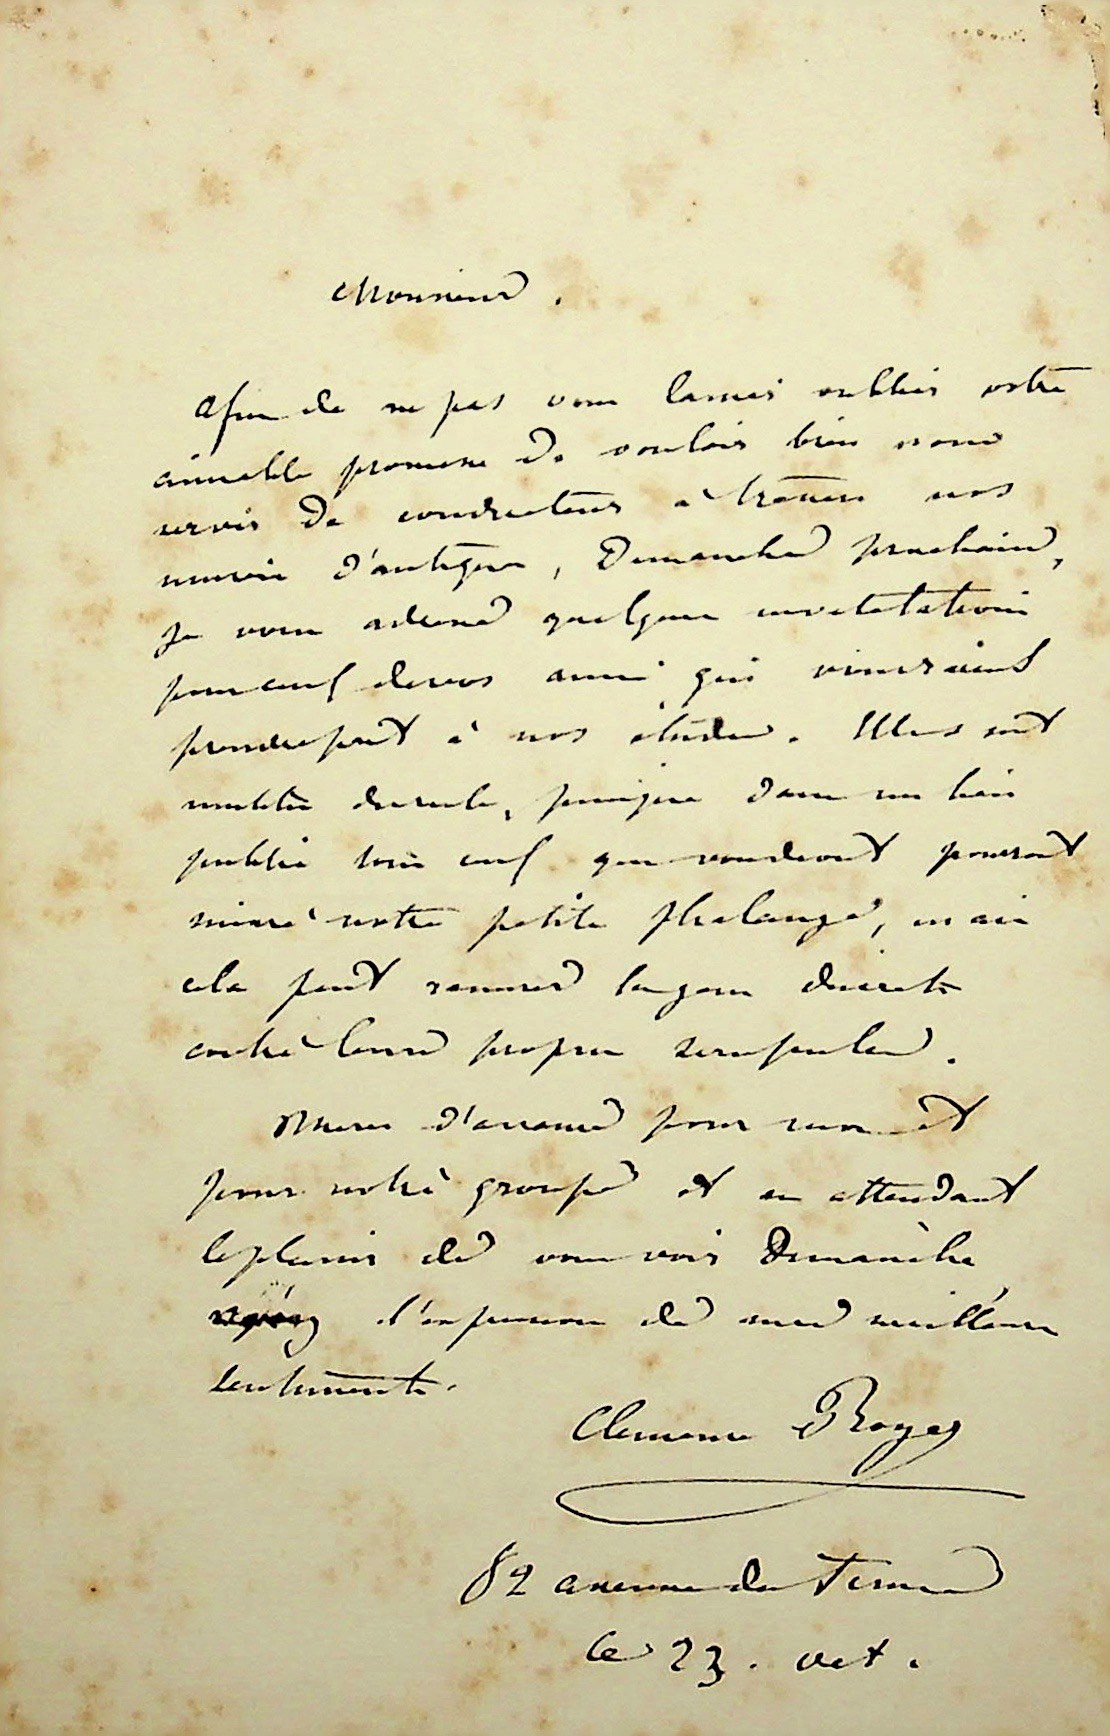 Monsieur.
Afin de ne pas vous laisser oublier votre
aimable promesse de vouloir bien nous
servir de conducteur à travers nos
musées d'antiques, Dimanche prochain,
je vous adresse quelques invitations
pour ceux de vos amis qui viendraient
prendre part à nos études. Elles sont
inutiles du reste, puisque dans un lieu
public tous ceux qui voudront pourront
suivre notre petite phalange, mais
cela peut rassurer les gens discrets
contre leurs propres scrupules.
Merci d'avance pour moi et
pour notre groupe et en attendant
le plaisir de vous voir Dimanche
l'expression de mes meilleurs
sentiments.
Clemence Royer
82 avenue des Ternes
Ce 23. oct.